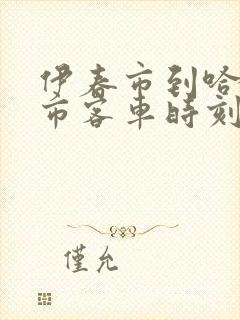 伊春市到哈
市客車時刻
僅允